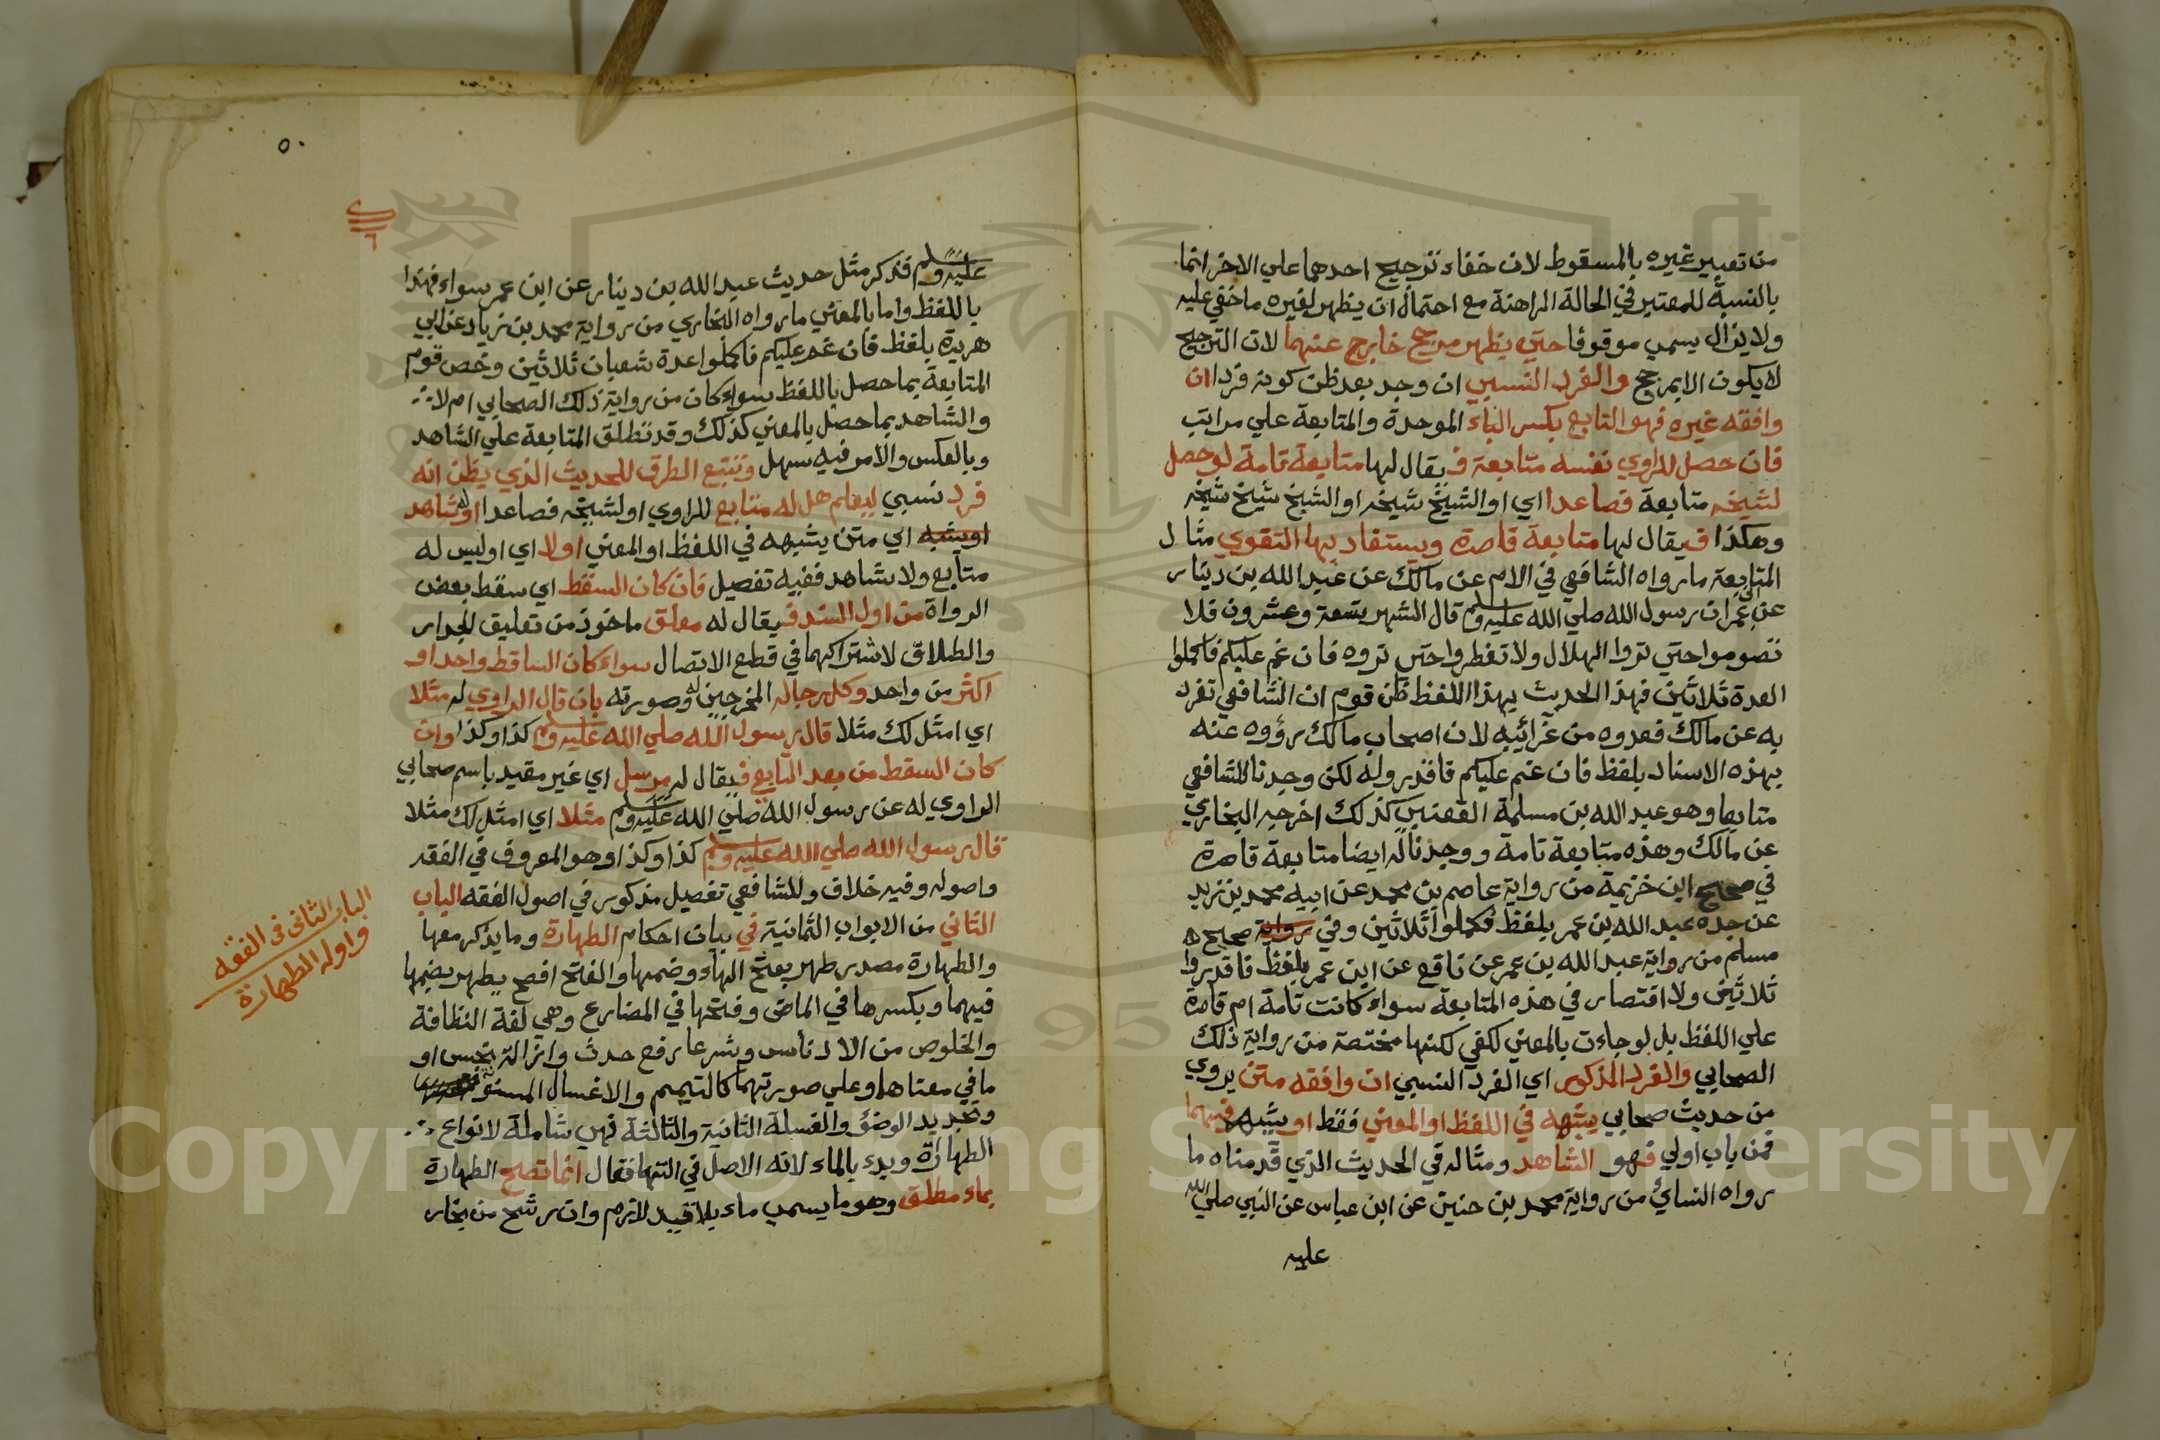 من تعبير غيره بالمسقوط لان خفاء ترجيح احدهما علي الاخر انما
بالنسبة للمعتبر في الحالة الراهنة مع احتمال ان يظهر لغيره ما خفي عليه
ولا يزال يسمي موقوفا حتي يظهر مرجح خارج عنهما لان الترجيح
لا يكون الا بمرجح والفرد النسبي ان وجد بعد ظن كونه فردا ان
وافقه غيره فهو التابع بكسر الباء الموحدة والمتابعة علي مراتب
فان حصل للراوي نفسه متابعة فيقال لها متابعة تامة لو حصل
لشيخه متابعة فصاعدا اي او الشيخ شيخه او الشيخ شيخ شيخه
وهكذا فيقال لها متابعة قاصرة ويستفاد بها التقوي مثال
المتابعة ما رواه الشافعي في الام عن مالك عن عبد الله بن دينار
عن ابن عمر ان رسول الله صلي الله عليه وسلم قال الشهر تسعة وعشرون فلا
تصوموا حتي تروا الهلال ولا تفطروا حتي تروه فان غم عليكم فاكملوا
العدة ثلاثين فهذا الحديث بهذا اللفظ ظن قوم ان الشافعي تفرد
به عن مالك فعدوه من غرائبه لان اصحاب مالك رووه عنه
بهذه الاسناد بلفظ فان غم عليكم فاقدروا له لكن وجدنا للشافعي
متابعا وهو عبد الله بن مسلمة القعنبي كذلك اخرجه البخاري
عن مالك وهذه متابعة تامة ووجدنا له ايضا متابعة قاصرة
في صحيح ابن خزيمة من رواية عاصم بن محمد عن ابيه محمد بن زيد
عن جده عبد الله بن عمر بلفظ فكملوا ثلاثين وفي رواية صحيح
مسلم من رواية عبد الله بن عمر عن نافع عن ابن عمر بلفظ فاقدروا
ثلاثين ولا اقتصار في هذه المتابعة سواء كانت تامة ام قاصرة
علي اللفظ بل لو جاءت بالمعني لكفي لكنها مختصة من رواية ذلك
الصحابي والفرد المذكور اي الفرد النسبي ان وافقه متن يروي
من حديث صحابي يشبهه في اللفظ او المعني فقط او يشبهه فيهما
فمن باب اولي فهو الشاهد ومثاله في الحديث الذي قدمناه ما
رواه النسائي من رواية محمد بن حنين عن ابن عباس عن النبي صلي الله
عليه
٥٠
عليه وسلم فذكر مثل حديث عبد الله بن دينار عن ابن عمر سواء فهذا
باللفظ واما بالمعني ما رواه البخاري من رواية محمد بن زياد عن ابي
هريرة بلفظ فان غم عليكم فاكملوا عدة شعبان ثلاثين وخص قوم
المتابعة بما حصل باللفظ سواء كان من رواية ذلك الصحابي ام لا
والشاهد بما حصل بالمعني كذلك وقد تطلق المتابعة علي الشاهد
وبالعكس والامر فيه سهل وتتبع الطرق للحديث الذي يظن انه
فرد نسبي ليعلم هل له متابع للراوي او لشيخه فصاعدا او له شاهد
او يشبه اي متن يشبهه في اللفظ او المعني اولا اي او ليس له
متابع ولا شاهد ففيه تفصيل فان كان السقط اي سقط بعض
الرواة من اول السند فيقال له معلق ماخوذ من تعليق الجدار
والطلاق لاشتراكهما في قطع الاتصال سواء كان الساقط واحدا و
اكثر من واحد وكل رجاله المخرجين له وصورته بان قال الراوي له مثلا
اي امثل لك مثلا قال رسول الله صلي الله عليه وسلم كذا وكذا وان
كان السقط من بعد التابع فيقال له مرسل اي غير مقيد باسم صحابي
الراوي له عن رسول الله صلي الله عليه وسلم مثلا اي امثل لك مثلا
قال رسول الله صلي الله عليه وسلم كذا وكذا وهو المعروف في الفقه
واصوله وفيه خلاف وللشافعي تفصيل مذكور في اصول الفقه الباب
الثاني من الابواب الثمانية في بيان احكام الطهارة وما يذكر معها
والطهارة مصدر طهر بفتح الهاء وضمها والفتح افصح يطهر بضمها
فيهما وبكسرها في الماضي وفتحها في المضارع وهي لغة النظافة
والخلوص من الادناس وشرعا رفع حدث وازالة نجس او
ما في معناهما وعلي صورتهما كالتيمم والاغسال المسنونة
وتجديد الوضوء والغسلة الثانية والثالثة فهي شاملة لانواع
الطهارة وبدء بالماء لانه الاصل في التها فقال انما تصح الطهارة
بماء مطلق وهو ما يسمي ماء بلا قيد لازم وان رشح من بخار
الباب الثاني في الفقه
واوله الطهارة
Copyright © King Saud University